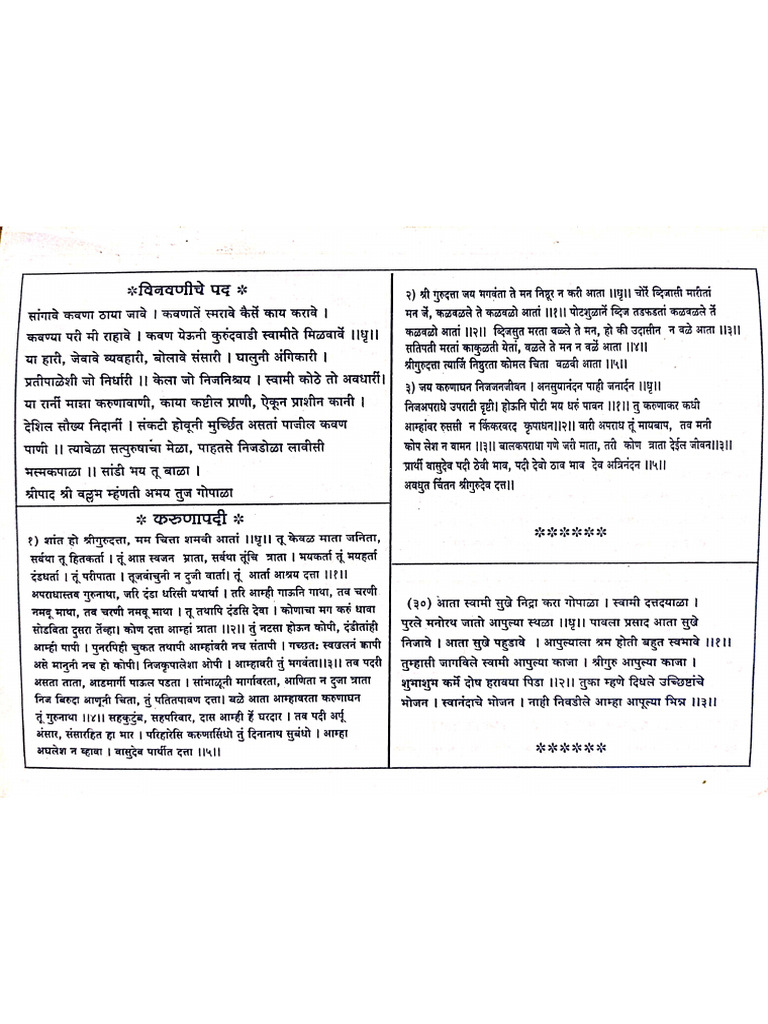 ✻विनवणीचे पद ✻
सांगावे कवणा ठाया जावे । कवणातें स्मरावे कैसें काय करावे ।
कवण्या परी मी राहावे । कवण येऊनी कुरुंदवाडी स्वामीते मिळवावें ।।धृ।।
या हारी, जेवावे व्यवहारी, बोलावे संसारी । घालुनी अंगिकारी ।
प्रतीपाळेशी जो निर्धारी ।। केला जो निजनिश्चय । स्वामी कोठे तो अवधारीं।
या रानीं माझा करुणावाणी, काया कष्टील प्राणी, ऐकून प्राशीन कानी ।
देशिल सौख्य निदानीं । संकटी होवूनी मुर्च्छित असतां पाजील कवण
पाणी ।। त्यावेळा सत्पुरुषाचा मेळा, पाहतसे निजडोळा लावीसी
भस्मकपाळा ।। सांडी भय तू बाळा ।
श्रीपाद श्री वल्लभ म्हंणती अभय तुज गोपाळा
✻ करुणापदी ✻
१) शांत हो श्रीगुरुदत्ता, मम चित्ता शमवी आतां ।।धृ।। तू केवळ माता जनिता,
सर्वथा तू हितकर्ता । तूं आप्त स्वजन भ्राता, सर्वथा तूंचि त्राता । भयकर्ता तूं भयहर्ता
दंडधर्ता । तूं परीपाता । तूजवांचुनी न दुजी वार्ता। तूं आर्ता आश्रय दत्ता ।।१।।
अपराधास्तव गुरुनाथा, जरि दंडा धरिसी यथार्था । तरि आम्ही गाऊनि गाथा, तव चरणी
नमवू माथा, तव चरणी नमवू माथा । तू तथापि दंडसि देवा । कोणाचा मग करुं धावा
सोडविता दुसरा तेंव्हा। कोण दत्ता आम्हां त्राता ।।२।। तुं नटसा होऊन कोपी, दंडीतांही
आम्ही पापी । पुनरपिही चुकत तथापी आम्हांवरी नच संतापी । गच्छतः स्खलनं कापी
असे मानुनी नच हो कोपी। निजकृपालेशा ओपी । आम्हावरी तुं भगवंता।।३।। तव पदरी
असता ताता, आडमार्गी पाऊल पडता । सांभाळूनी मार्गावरता, आणिता न दुजा त्राता
निज बिरुदा आणूनी चिता, तुं पतितपावन दत्ता। वळे आता आम्हावरता करुणाघन
तूं गुरुनाथा ।।४।। सहकुटुंब, सहपरिवार, दास आम्ही हें घरदार । तव पदी अर्पू
अंसार, संसारहित हा भार । परिहारेसि करुणासिंधो तुं दिनानाथ सुबंधो । आम्हा
अघलेश न व्हावा । वासुदेव पार्थीत दत्ता ।।५।।
२) श्री गुरुदत्ता जय भगवंता ते मन निष्ठूर न करी आता ।।धृ।। चोरें व्दिजासी मारीतां
मन जें, कळवळले ते कळवळो आतां ।।१।। पोटशुळानें व्दिज तडफडतां कळवळले तें
कळवळो आतां ।।२।। व्दिजसुत मरता वळ्ले ते मन, हो की उदासीन न वळे आता ।।३।।
सतिपती मरतां काकुळती येतां, वळले ते मन न वळें आता ।।४।।
श्रीगुरुदत्ता त्यार्जि निष्ठुरता कोमल चिता वळवी आता ।।५।।
३) जय करुणाघन निजजनजीवन । अनसुयानंदन पाही जनार्दन ।।धृ।।
निजअपराधे उपराटी दृष्टी। होऊनि पोटी भय धरुं पावन ।।१।। तु करुणाकर कधी
आम्हांवर रुससी न किंकरवरद कृपाधन।।२।। वारी अपराध तूं मायबाप, तव मनी
कोप लेश न वामन ।।३।। बालकपराधा गणे जरी माता, तरी कोण त्राता देईल जीवन।।३।।
प्रार्थी वासुदेव पदी ठेवी भाव, पदी देवो ठाव भाव देव अत्रिनंदन ।।५।।
अवधुत चिंतन श्रीगुरुदेव दत्त।।
✻✻✻✻✻✻
(३०) आता स्वामी सुखे निद्रा करा गोपाळा । स्वामी दत्तदयाळा ।
पुरले मनोरथ जातो आपुल्या स्थळा ।।धृ।। पावला प्रसाद आता सुखे
निजावे । आता सुखे पहुडावे । आपुल्याला श्रम होती बहुत स्वभावे ।।१।।
तुम्हासी जागविले स्वामी आपुल्या काजा । श्रीगुरु आपुल्या काजा ।
शुभाशुभ कर्मे दोष हरावया पिडा ।।२।। तुका म्हणे दिधले उच्छिष्टांचे
भोजन । स्वानंदाचे भोजन । नाही निवडीले आम्हा आपूल्या भिन्न ।।३।।
✻✻✻✻✻✻